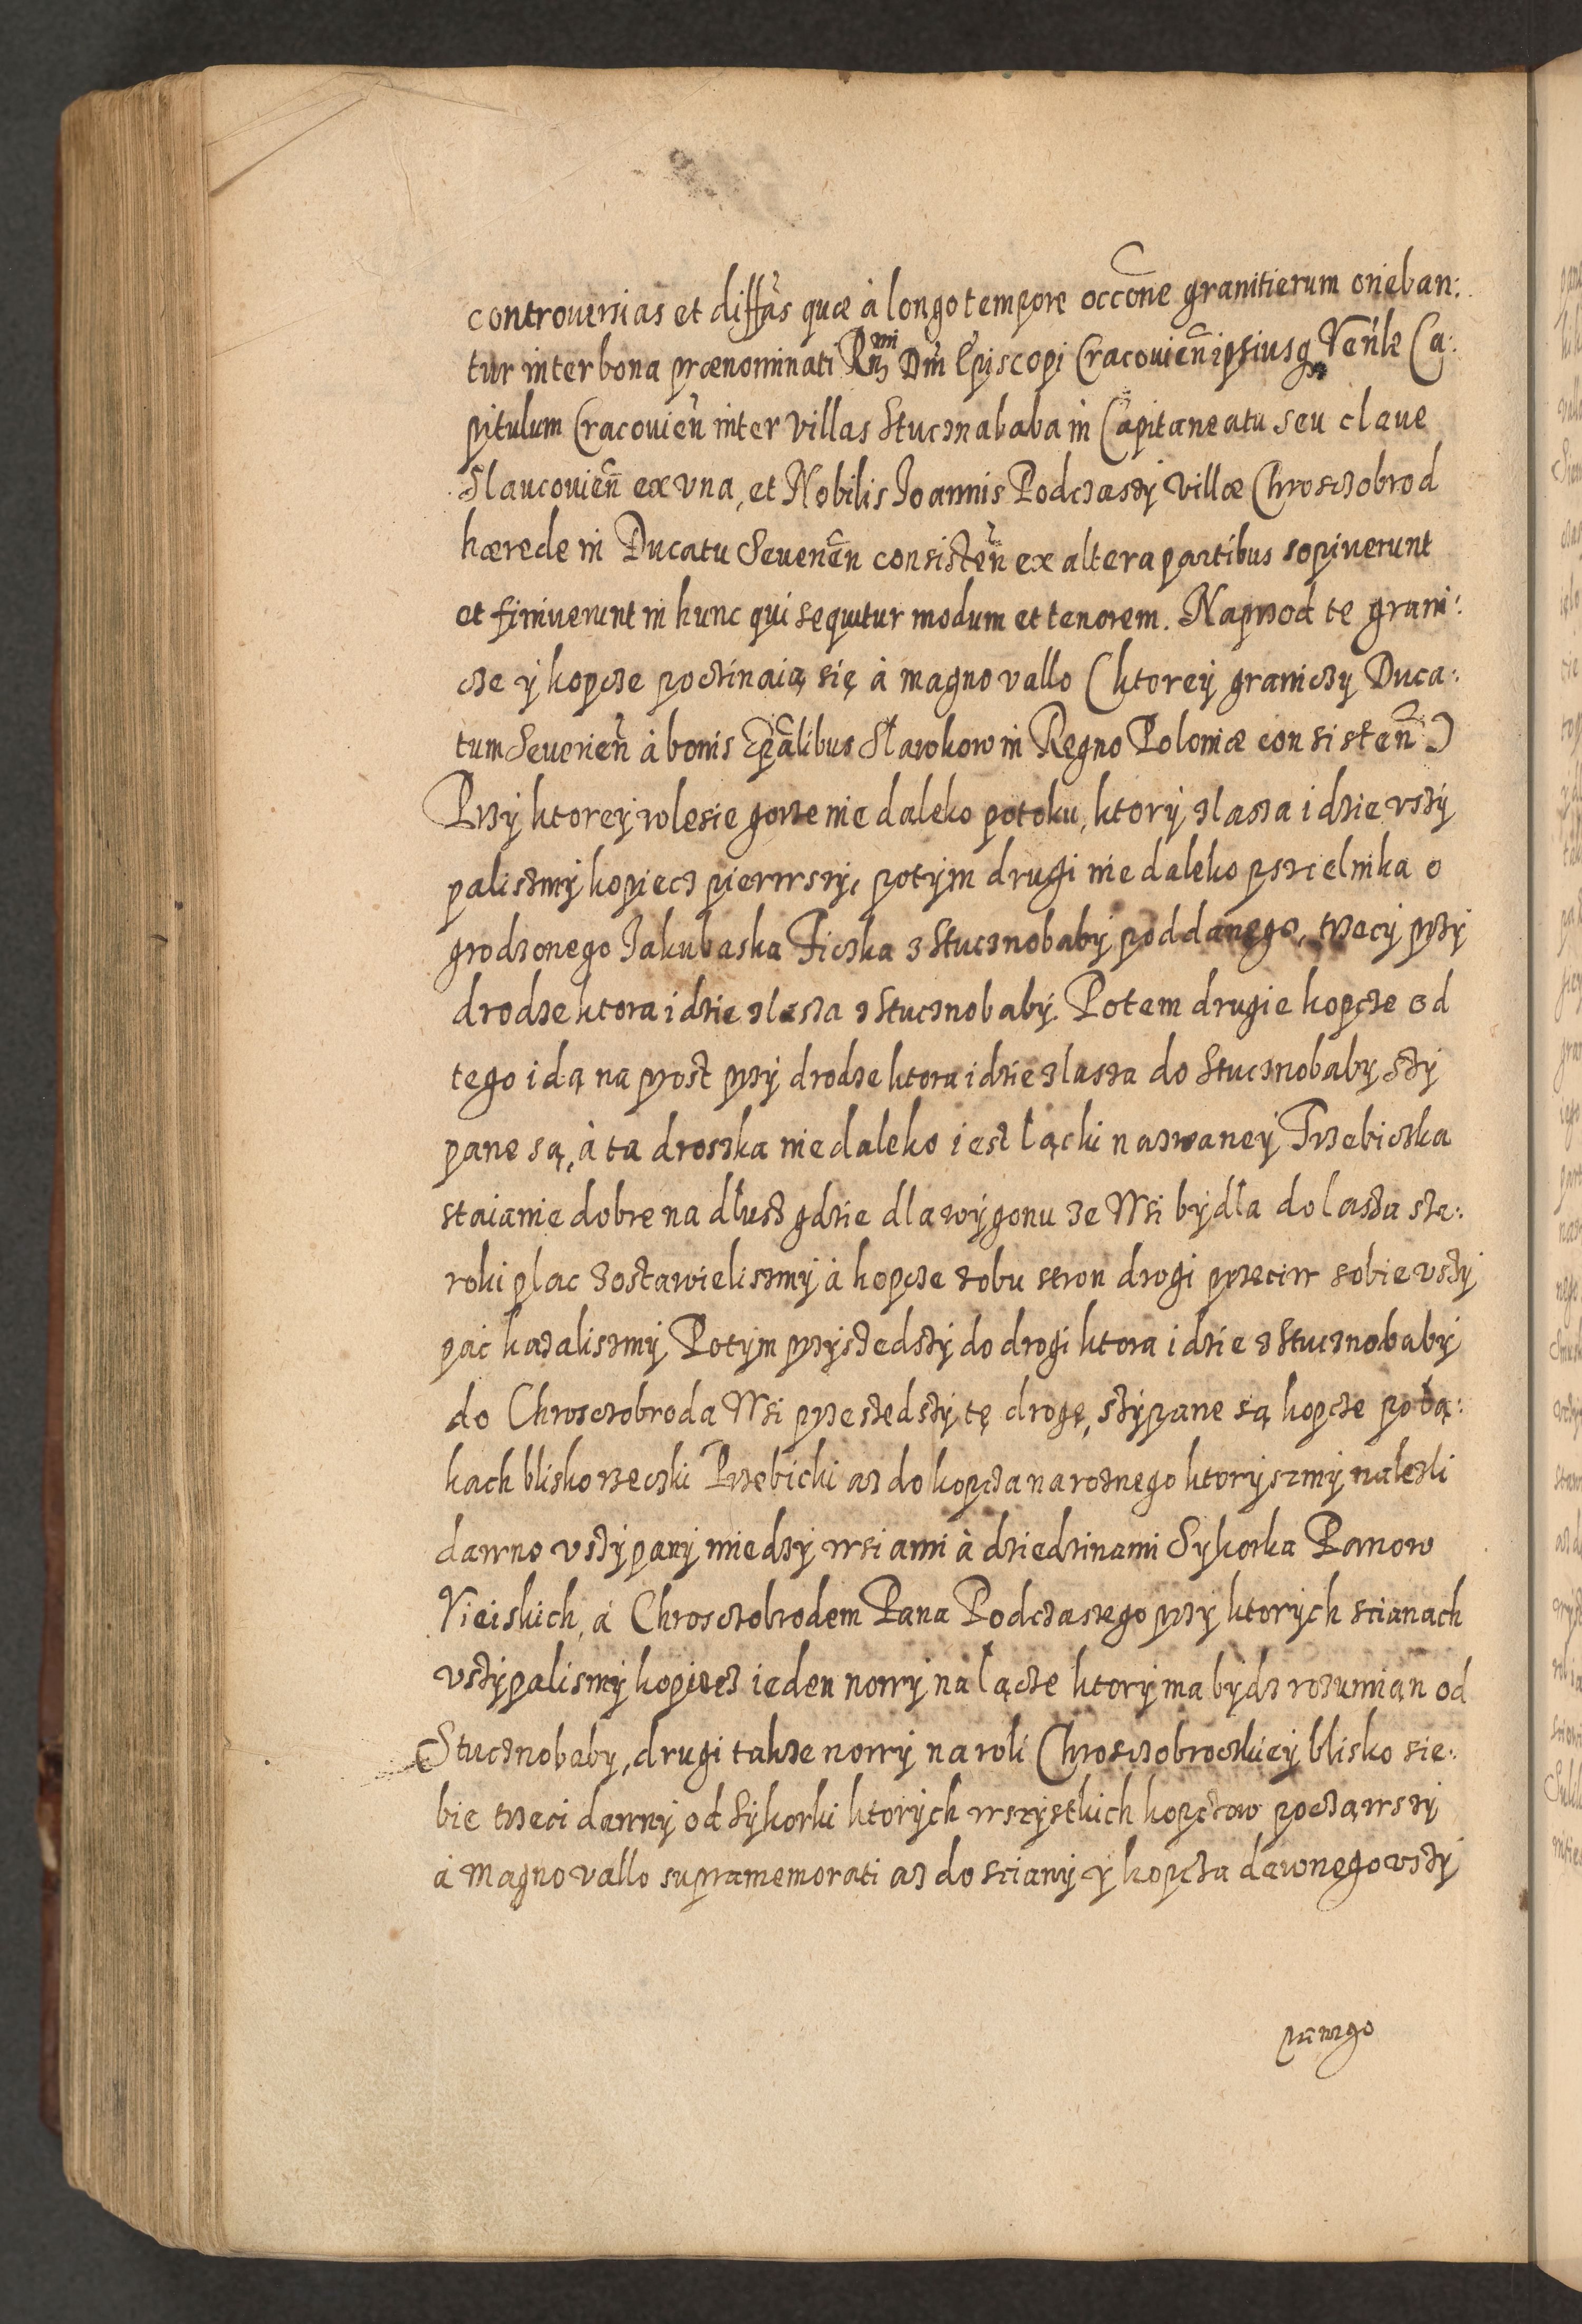 controuersias et diffãs quæ à longo tempore occõne granitierum orieban:
tur inter bona prænominati Rñdmi Dñi Episcopi Cracovieñ ipsiusq Veñle Ca:
pitulum Cracovieñ inter villas Stucznababa in Capitaneatu seu claue
Slaucovieñ ex vna, et Nobilis Joannis Podczaszÿ villæ Chrosczobrod
hærede in Ducatu Severieñ consisteñ ex altera partibus sopiuerunt
et finiuerunt in hunc qui sequitur modum et tenorem. Naprzod te grani:
cze ÿ kopcze poczinaią się à magno vallo (ktoreÿ graniczÿ Duca:
tum Severieñ à bonis Epãlibus Sławkow in Regno Poloniæ consisteñ)
Przÿ ktoreÿ w lesie gorze nie daleko potoku, ktorÿ z lasza idzie vszÿ
paliszmÿ kopiecz pierwszÿ, potÿm drugi nie daleko pszczelnika o
grodzonego Jakubaska Ficzka z Stucznobabÿ poddanego, trzeci przÿ
drodze ktora idzie z lasza z Stucznobabÿ. Potem drugie kopcze od
tego idą na prost przÿ drodze ktora idzie z lasza do Stucznobabÿ szÿ
pane są, à ta droszka niedaleko iest łącki nazwaneÿ Trzebiczka
staianie dobre na dłusz gdzie dla wÿgonu ze Wsi bÿdła do lasza sze:
roki plac zostawieliszmÿ à kopcze z obu stron drogi przeciw sobie vszÿ
pać kazaliszmÿ. Potÿm przÿszedszÿ do drogi ktora idzie z Stucznobabÿ
do Chrosczobroda Wsi przeszedszÿ tę drogę, szÿpane są kopcze po łą:
kach blisko rzeczki Trzebicki az do kopcza naroznego ktorÿszmÿ nalezli
dawno vszÿpanÿ miedzÿ wsiami à dziedzinami Sykorka Panow
Vieiskich, à Chrosczobrodem Pana Podczaszego przÿ ktorÿch scianach
vszÿpalismÿ kopiecz ieden nowÿ na łącze ktorÿ ma bÿdz rozumian od
Stucznobaby, drugi takze nowÿ na roli Chrosczobroczkieÿ blisko sie:
bie trzeci dawnÿ od Sÿkorki ktorÿch wszÿstkich kopczow począwszÿ
à magno vallo supramemorati az do scianÿ ÿ kopcza dawnego vszÿ
panego